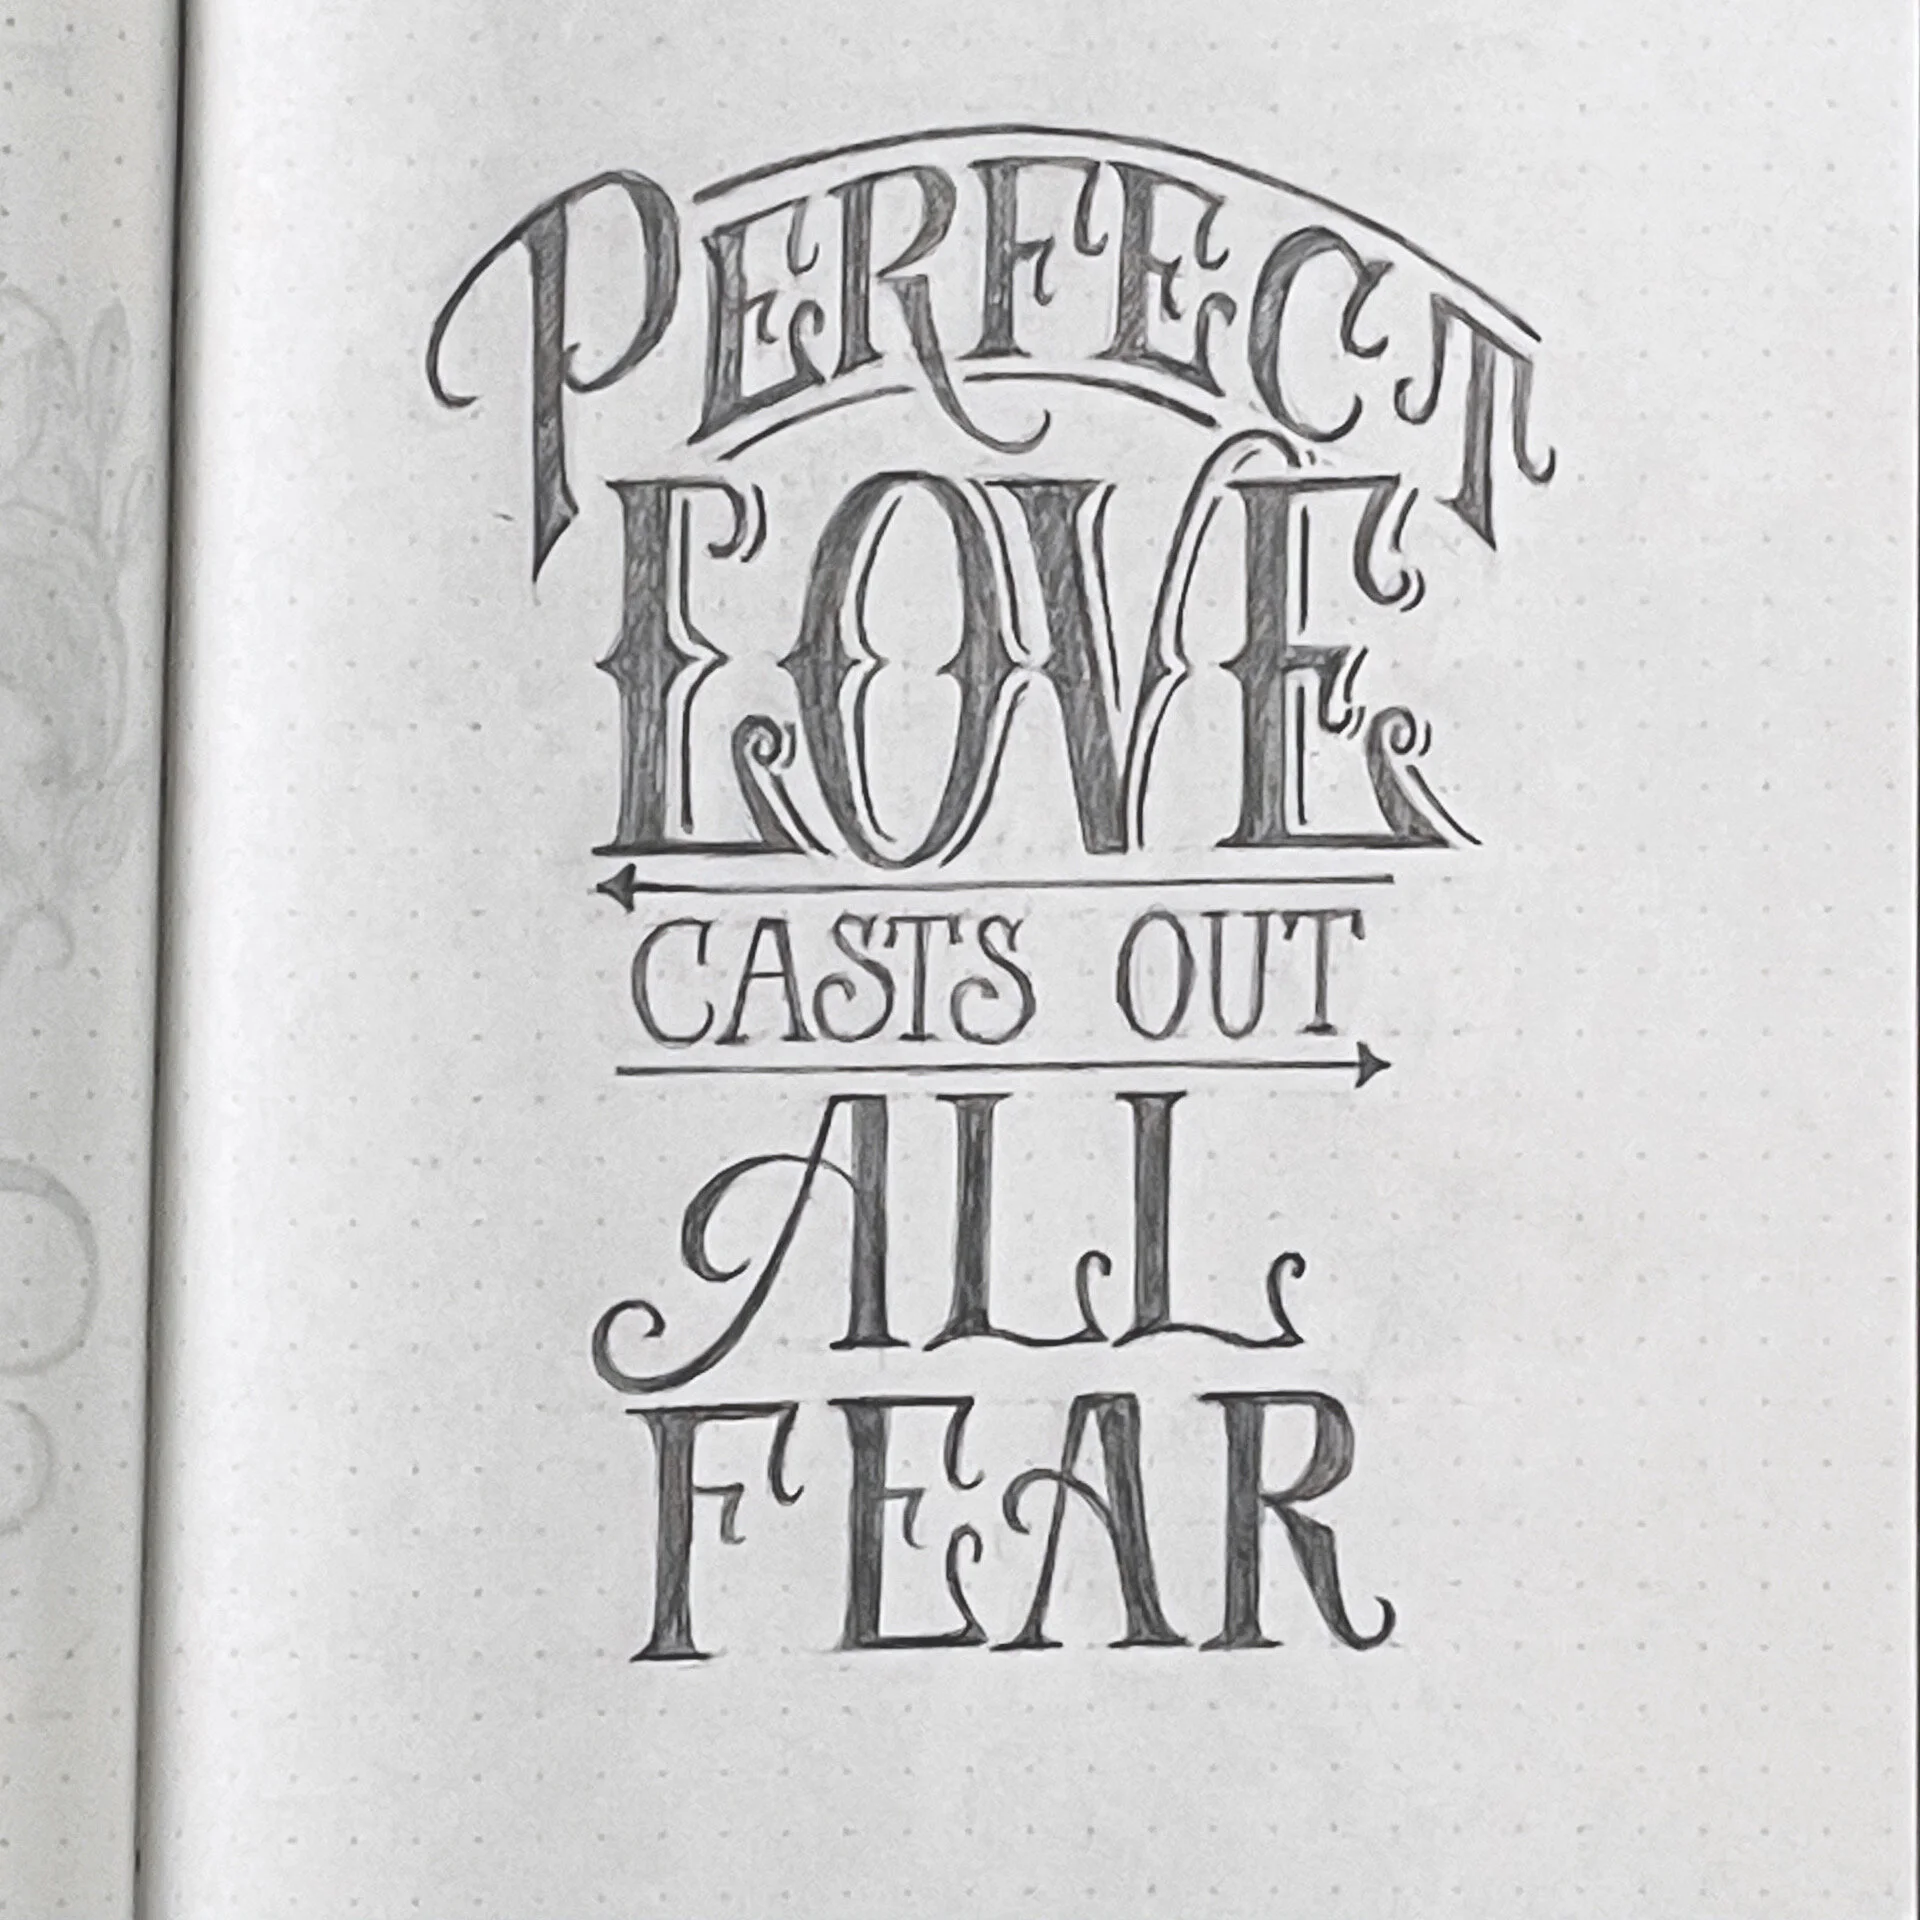 PERFECT
LOVE
CASTS OUT
ALL
FEAR